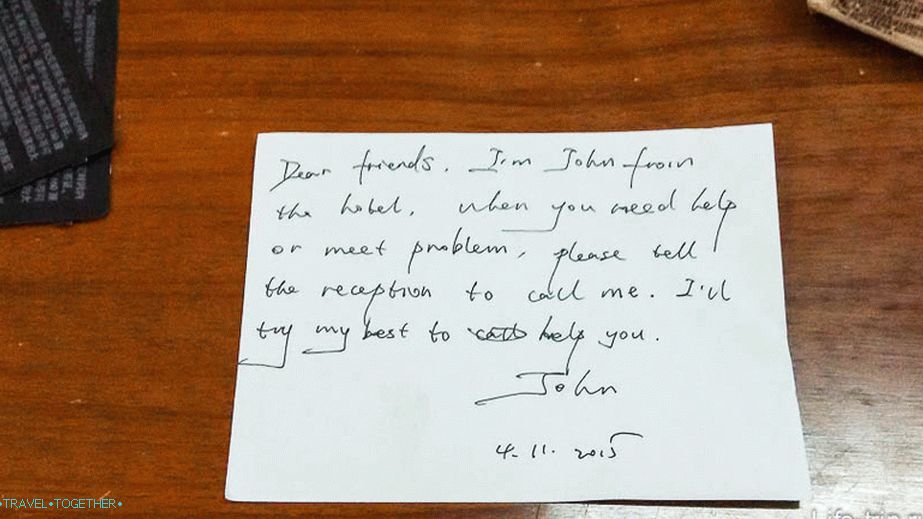 Dear friends. I'm John from
the hotel. when you need help
or meet problem, please tell
the reception to call me. I'll
try my best to help you.
John
4.11.2015
•TRAVEL•TOGETHER•